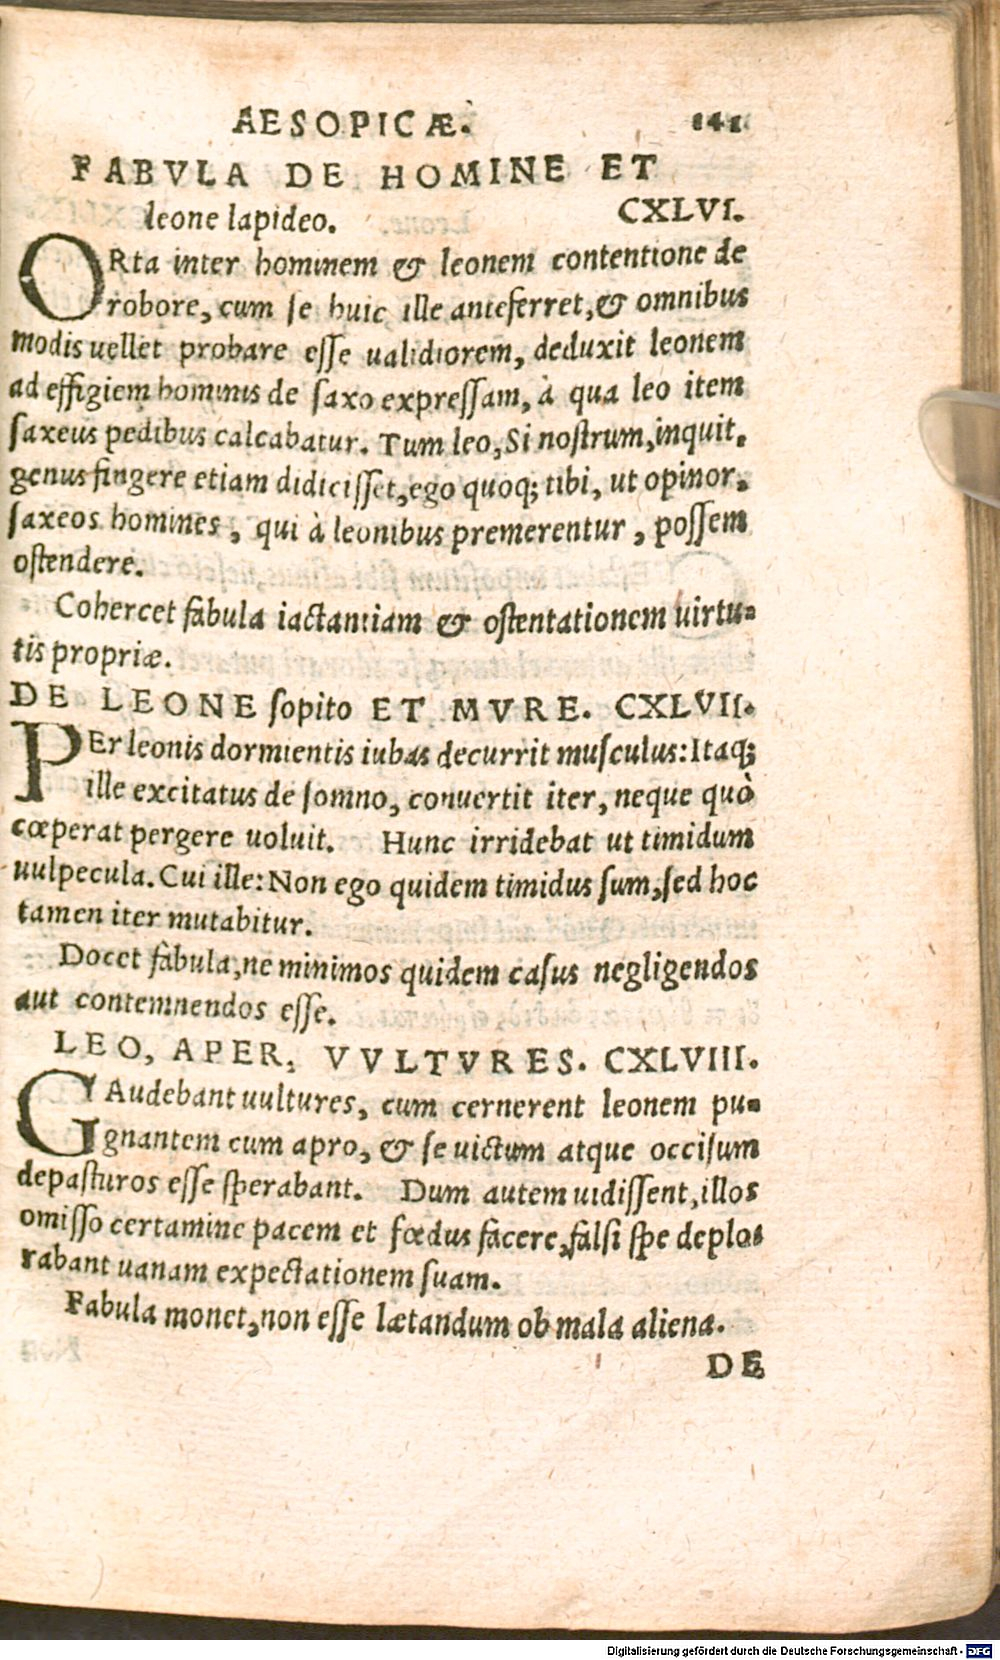 AESOPICÆ. 141
FABVLA DE HOMINE ET
leone lapideo. CXLVI.
ORta inter hominem & leonem contentione de
robore, cum se huic ille anteferret, & omnibus
modis uellet probare esse ualidiorem, deduxit leonem
ad effigiem hominis de saxo expressam, à qua leo item
saxeus pedibus calcabatur. Tum leo, Si nostrum, inquit,
genus fingere etiam didicisset, ego quoq; tibi, ut opinor,
saxeos homines, qui à leonibus premerentur, possem
ostendere.
Cohercet fabula iactantiam & ostentationem uirtu-
tis propriæ.
DE LEONE sopito ET MVRE. CXLVII.
PEr leonis dormientis iubas decurrit musculus: Itaq;
ille excitatus de somno, conuertit iter, neque quò
cœperat pergere uoluit. Hunc irridebat ut timidum
uulpecula. Cui ille: Non ego quidem timidus sum, sed hoc
tamen iter mutabitur.
Docet fabula, ne minimos quidem casus negligendos
aut contemnendos esse.
LEO, APER, VVLTVRES. CXLVIII.
GAudebant uultures, cum cernerent leonem pu-
gnantem cum apro, & se uictum atque occisum
depasturos esse sperabant. Dum autem uidissent, illos
omisso certamine pacem et fœdus facere, falsi spe deplo-
rabant uanam expectationem suam.
Fabula monet, non esse lætandum ob mala aliena.
DE
Digitalisierung gefördert durch die Deutsche Forschungsgemeinschaft - DFG